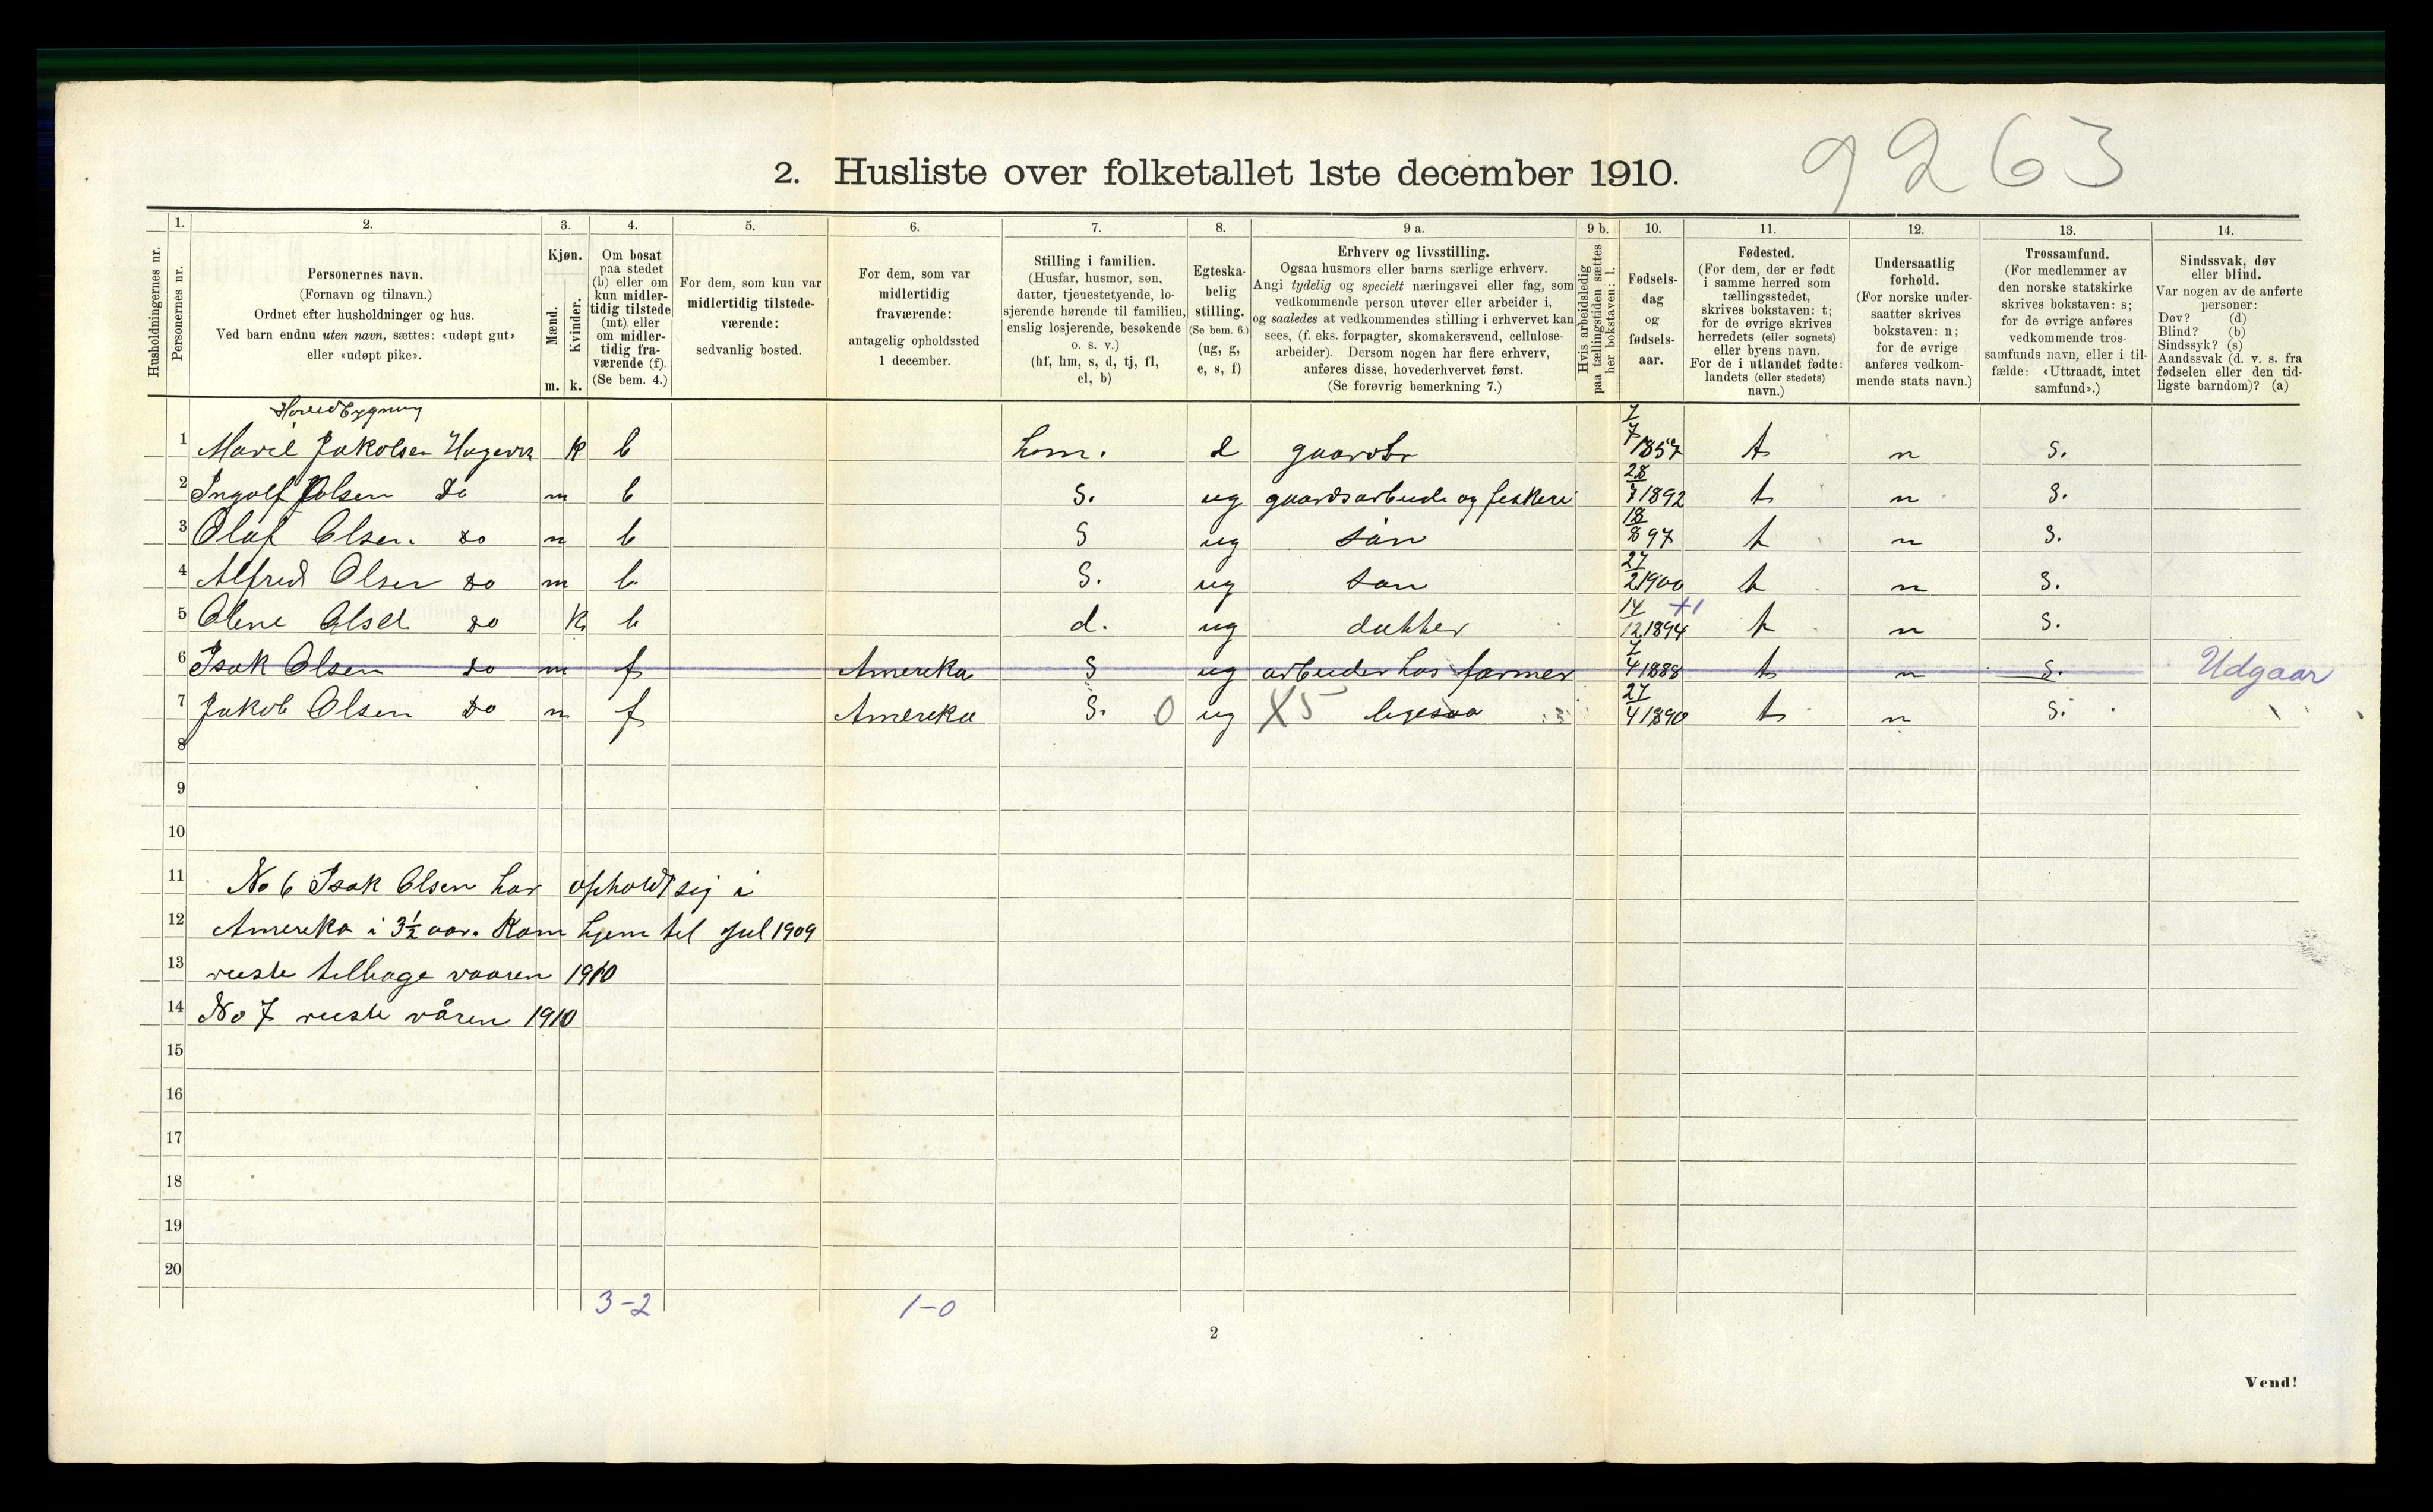 9263
2. Husliste over folketallet 1ste december 1910.
Husholdningernes nr.
1. Personernes nr.
2. Personernes navn. (Fornavn og tilnavn.) Ordnet efter husholdninger og hus. Ved barn endnu uten navn, sættes: «udøpt gut» eller «udøpt pike».
3. Kjøn. Mænd. m. Kvinder. k.
4. Om bosat paa stedet (b) eller om kun midlertidig tilstede (mt) eller om midlertidig fraværende (f). (Se bem. 4.)
5. For dem, som kun var midlertidig tilstedeværende: sedvanlig bosted.
6. For dem, som var midlertidig fraværende: antagelig opholdssted 1 december.
7. Stilling i familien. (Husfar, husmor, søn, datter, tjenestetyende, losjerende hørende til familien, enslig losjerende, besøkende o. s. v.) (hf, hm, s, d, tj, fl, el, b)
8. Egteskabelig stilling. (Se bem. 6.) (ug, g, e, s, f)
9 a. Erhverv og livsstilling. Ogsaa husmors eller barns særlige erhverv. Angi tydelig og specielt næringsvei eller fag, som vedkommende person utøver eller arbeider i, og saaledes at vedkommendes stilling i erhvervet kan sees, (f. eks. forpagter, skomakersvend, cellulosearbeider). Dersom nogen har flere erhverv, anføres disse, hovederhvervet først. (Se forøvrig bemerkning 7.)
9 b. Hvis arbeidsledig paa tællingstiden sættes her bokstaven: l.
10. Fødselsdag og fødselsaar.
11. Fødested. (For dem, der er født i samme herred som tællingsstedet, skrives bokstaven: t; for de øvrige skrives herredets (eller sognets) eller byens navn. For de i utlandet fødte: landets (eller stedets) navn.)
12. Undersaatlig forhold. (For norske undersaatter skrives bokstaven: n; for de øvrige anføres vedkommende stats navn.)
13. Trossamfund. (For medlemmer av den norske statskirke skrives bokstaven: s; for de øvrige anføres vedkommende trossamfunds navn, eller i tilfælde: «Uttraadt, intet samfund».)
14. Sindssvak, døv eller blind. Var nogen av de anførte personer: Døv? (d) Blind? (b) Sindssyk? (s) Aandssvak (d. v. s. fra fødselen eller den tidligste barndom)? (a)
Hovedbygning
1 k b hm. gaardbr 7/7 1857 t n s.
2 Ingolf Olsen Do m b s. ug gaardsarbeide og feskeri 28/7 1892 t n s.
3 Olaf Olsen. Do m b s ug sön 18/8 97 t n s.
4 Alfred Olsen Do m b. s. ug sön 27/2 1900 t n s.
5 Olene Do k b d. ug datter 14/12 1894 +1 t n s.
6 Isak Olsen Do m f Amereka s ug arbeider hos farmer 7/4 1888 t n s. Udgaar
7 Jakob Olsen Do m f Amereka s. 0 ug X5 ligesaa 27/4 1890 t n s.
8
9
10
11 No 6 Isak Olsen har opholdt sig i
12 Amereka i 3½ aar. Kom hjem til Jul 1909
13 reiste tilbage vaaren 1910
14 No 7 reiste våren 1910
15
16
17
18
19
20
3-2 1-0
2
Vend!